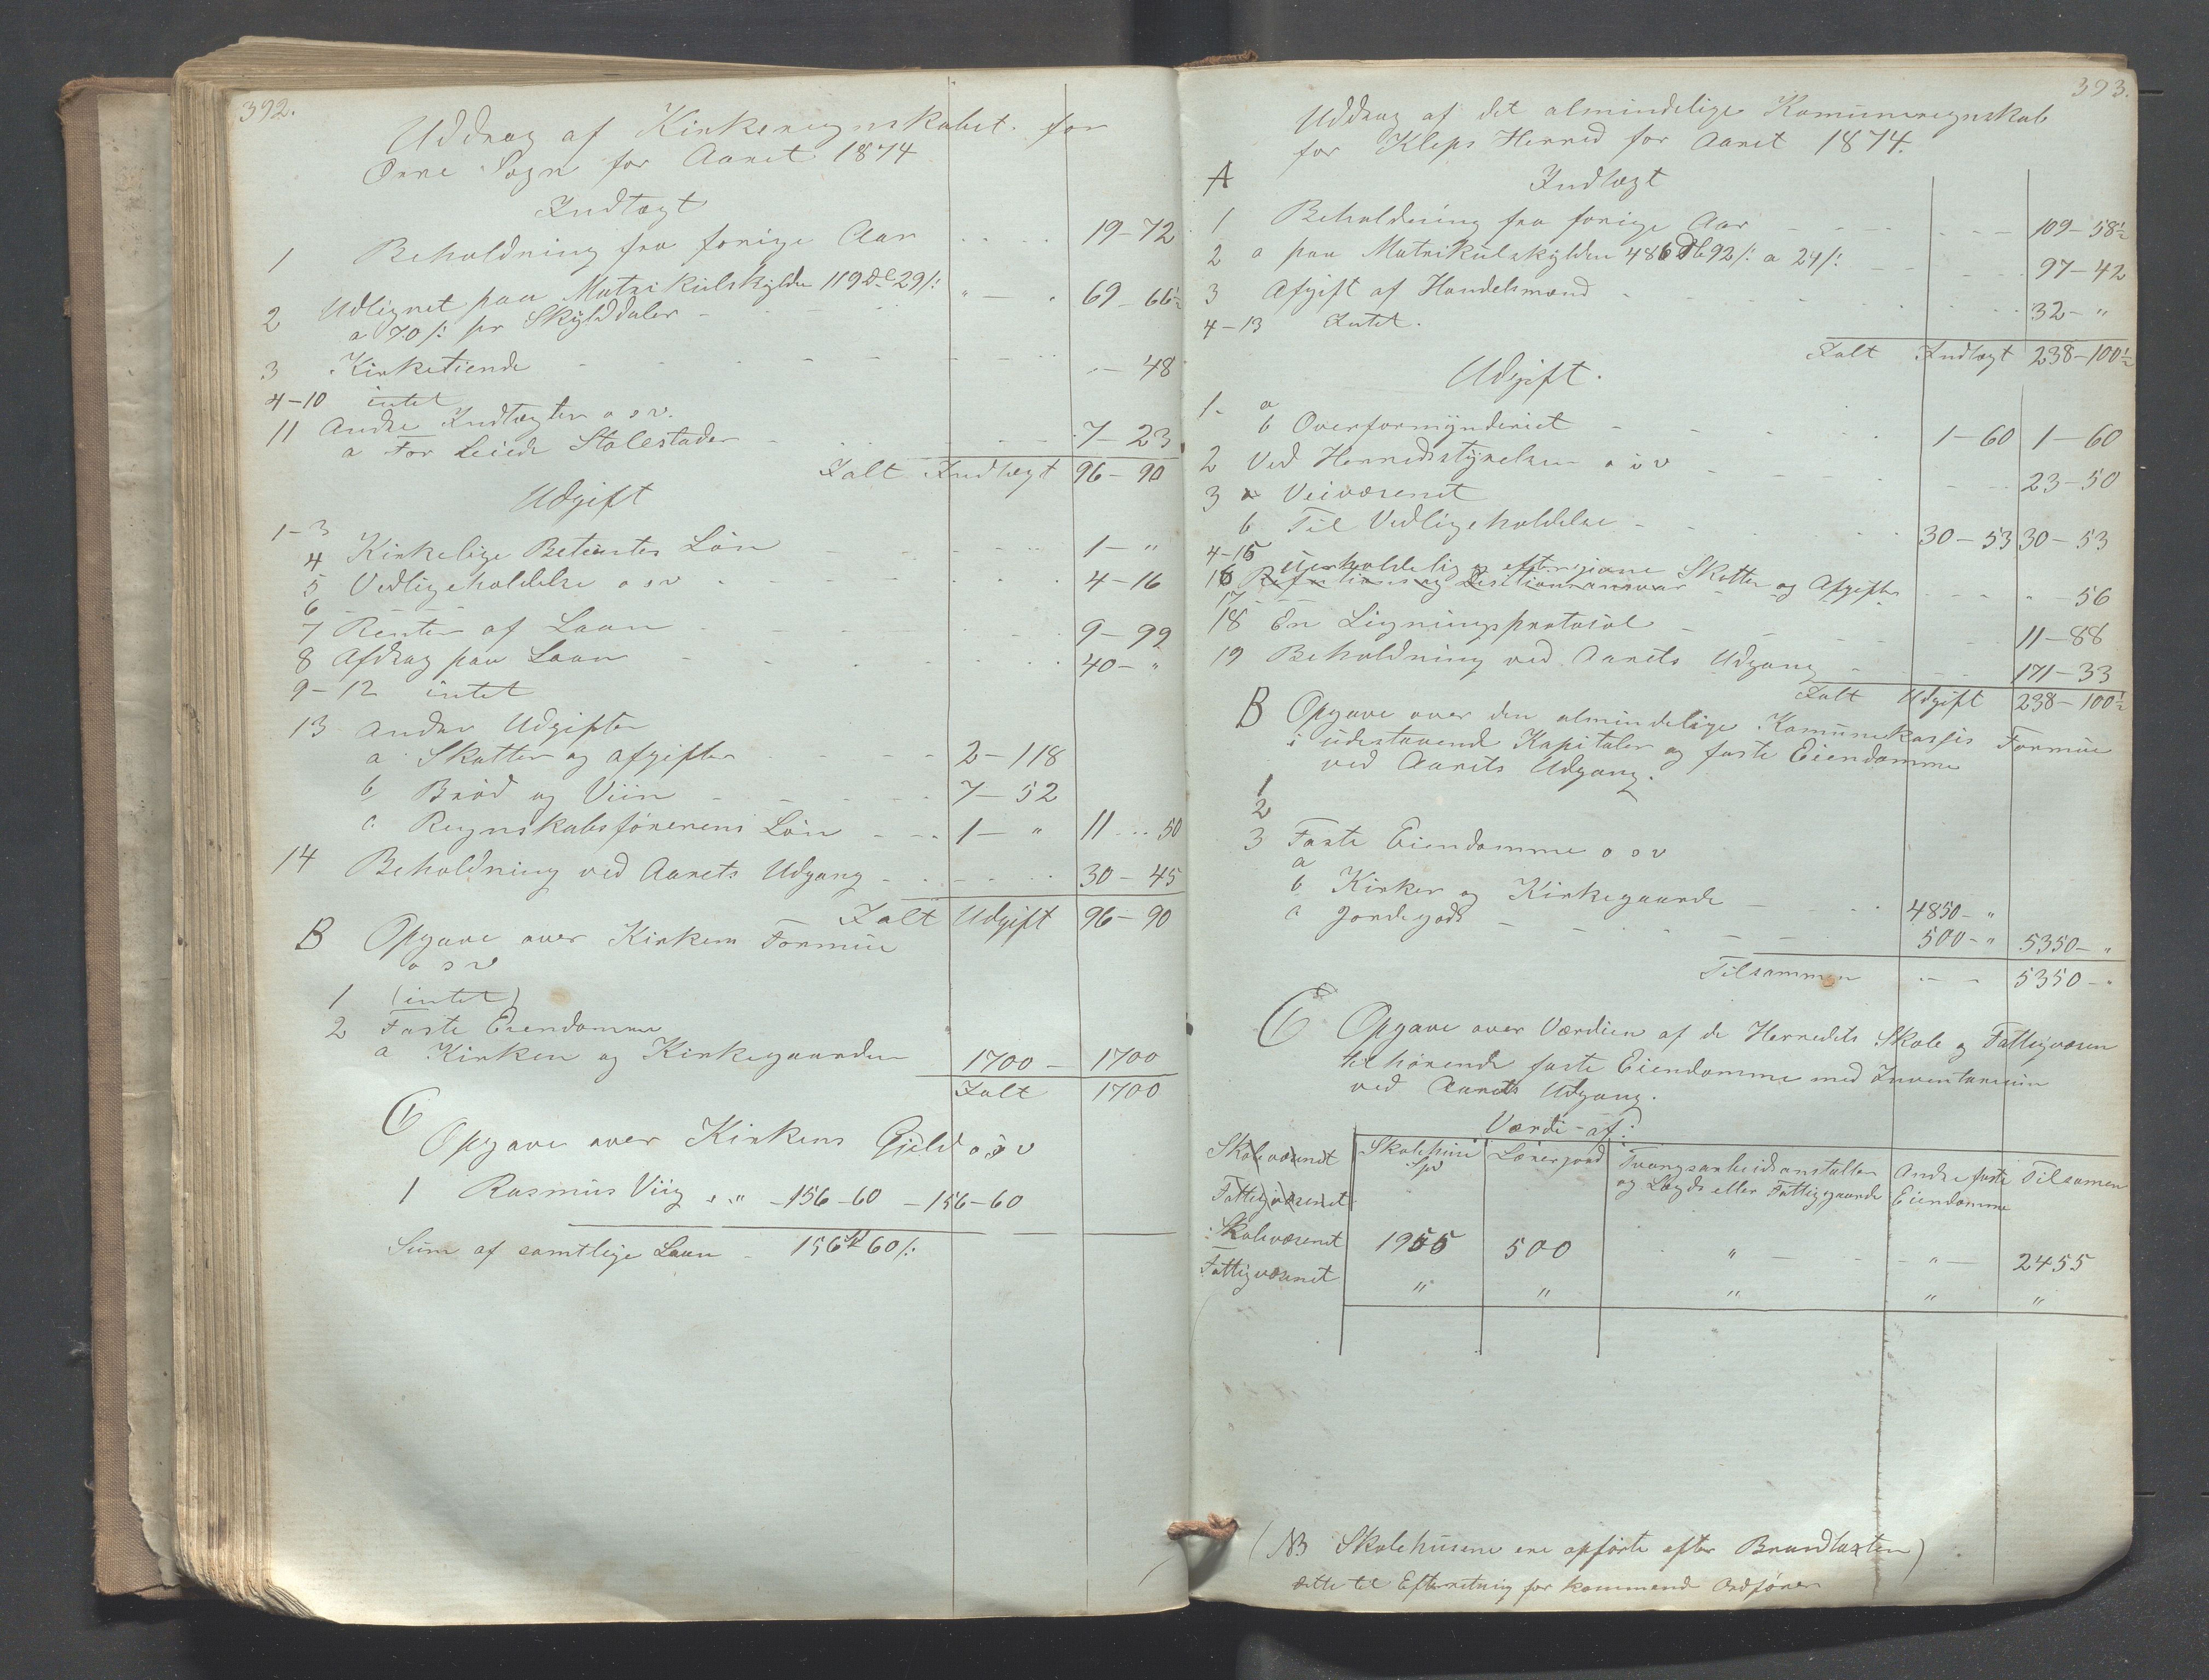 392.
Uddrag af Kirkeregnskabet for
Orre Sogn for Aaret 1874
Indtægt
1 Beholdning fra forrige Aar 19-72
2 Udlignet paa Matrikulskylden 119 Dl 29 /: " — " 69-66½
a 70 /: pr Skylddaler
3 Kirketiende " - 48
4-10 intet
11 Andre Indtægter o s v.
a For leiede Stolestader 7-23
Ialt Indtægt 96-90
Udgift
1-3
4 Kirkelige Betjentes Løn 1-"
5 Vedligeholdelse o s v 4-16
6
7 Renter af Laan 9-99
8 Afdrag paa Laan 40-"
9-12 intet
13 Andre Udgifter
a Skatter og afgifter 2-118
b Brød og Viin 7-52
c. Regnskabsførerens Løn 1-" 11-50
14 Beholdning ved Aarets Udgang 30-45
Ialt Udgift 96-90
B Opgave over Kirkens Formue
o s v
1 (intet)
2 Faste Eiendomme
a Kirken og Kirkegaarden 1700 - 1700
Ialt 1700
C
Opgave over Kirkens Gjeld o s v
1 Rasmus Viig " " -156-60 -156-60
Sum af samtlige Laan - 156 60 /:
393.
Uddrag af det almindelige Komuneregnskab
for Kleps Herred for Aaret 1874.
A Indtægt
1 Beholdning fra forige Aar 109-58½
2 a paa Matrikulskylden 486 Dl 92 /: a 24 /: 97-42
3 Afgift af Handelsmænd 32-"
4-13 Intet.
Ialt Indtægt 238-100½
Udgift.
1. a
b Overformynderiet 1-60 1-60
2 Ved Herredsstyrelsen o s v 23-50
3 a Veivæsenet
b Til Vedligeholdelse 30-53 30-53
4-15
16 uerholdelig og eftergivne Skatter og Afgifter " - 56
17
18 En Ligningsprotokol 11-88
19 Beholdning ved Aarets Udgang 171-33
Ialt Udgift 238-100½
B Opgave over den almindelige Komunekasses Formue
i udestaaende Kapitaler og faste Eiendomme
ved Aarets Udgang.
1
2
3 Faste Eiendomme o s v
a
b Kirker og Kirkegaarde 4850-"
c Jordegods 500-" 5350-"
Tilsammen - - 5350-"
C Opgave over Værdien af de Herredets Skole og Fattigvæsen
tilhørende faste Eiendomme med Inventarium
ved Aarets Udgang.
Værdi af:
Skolevæsenet Skolehuse Lærerjord Tvangsarbeidsanstalter Andre faste Tilsamen
Spd og Lægds eller Fattiggaarde Eiendomme
Fattigvæsenet
Skolevæsenet 1955 500 " " 2455
Fattigvæsenet " " " " "
(NB Skolehusene ere opførte efter Brandtaxten)
dette til Efterretning for kommende Ordfører